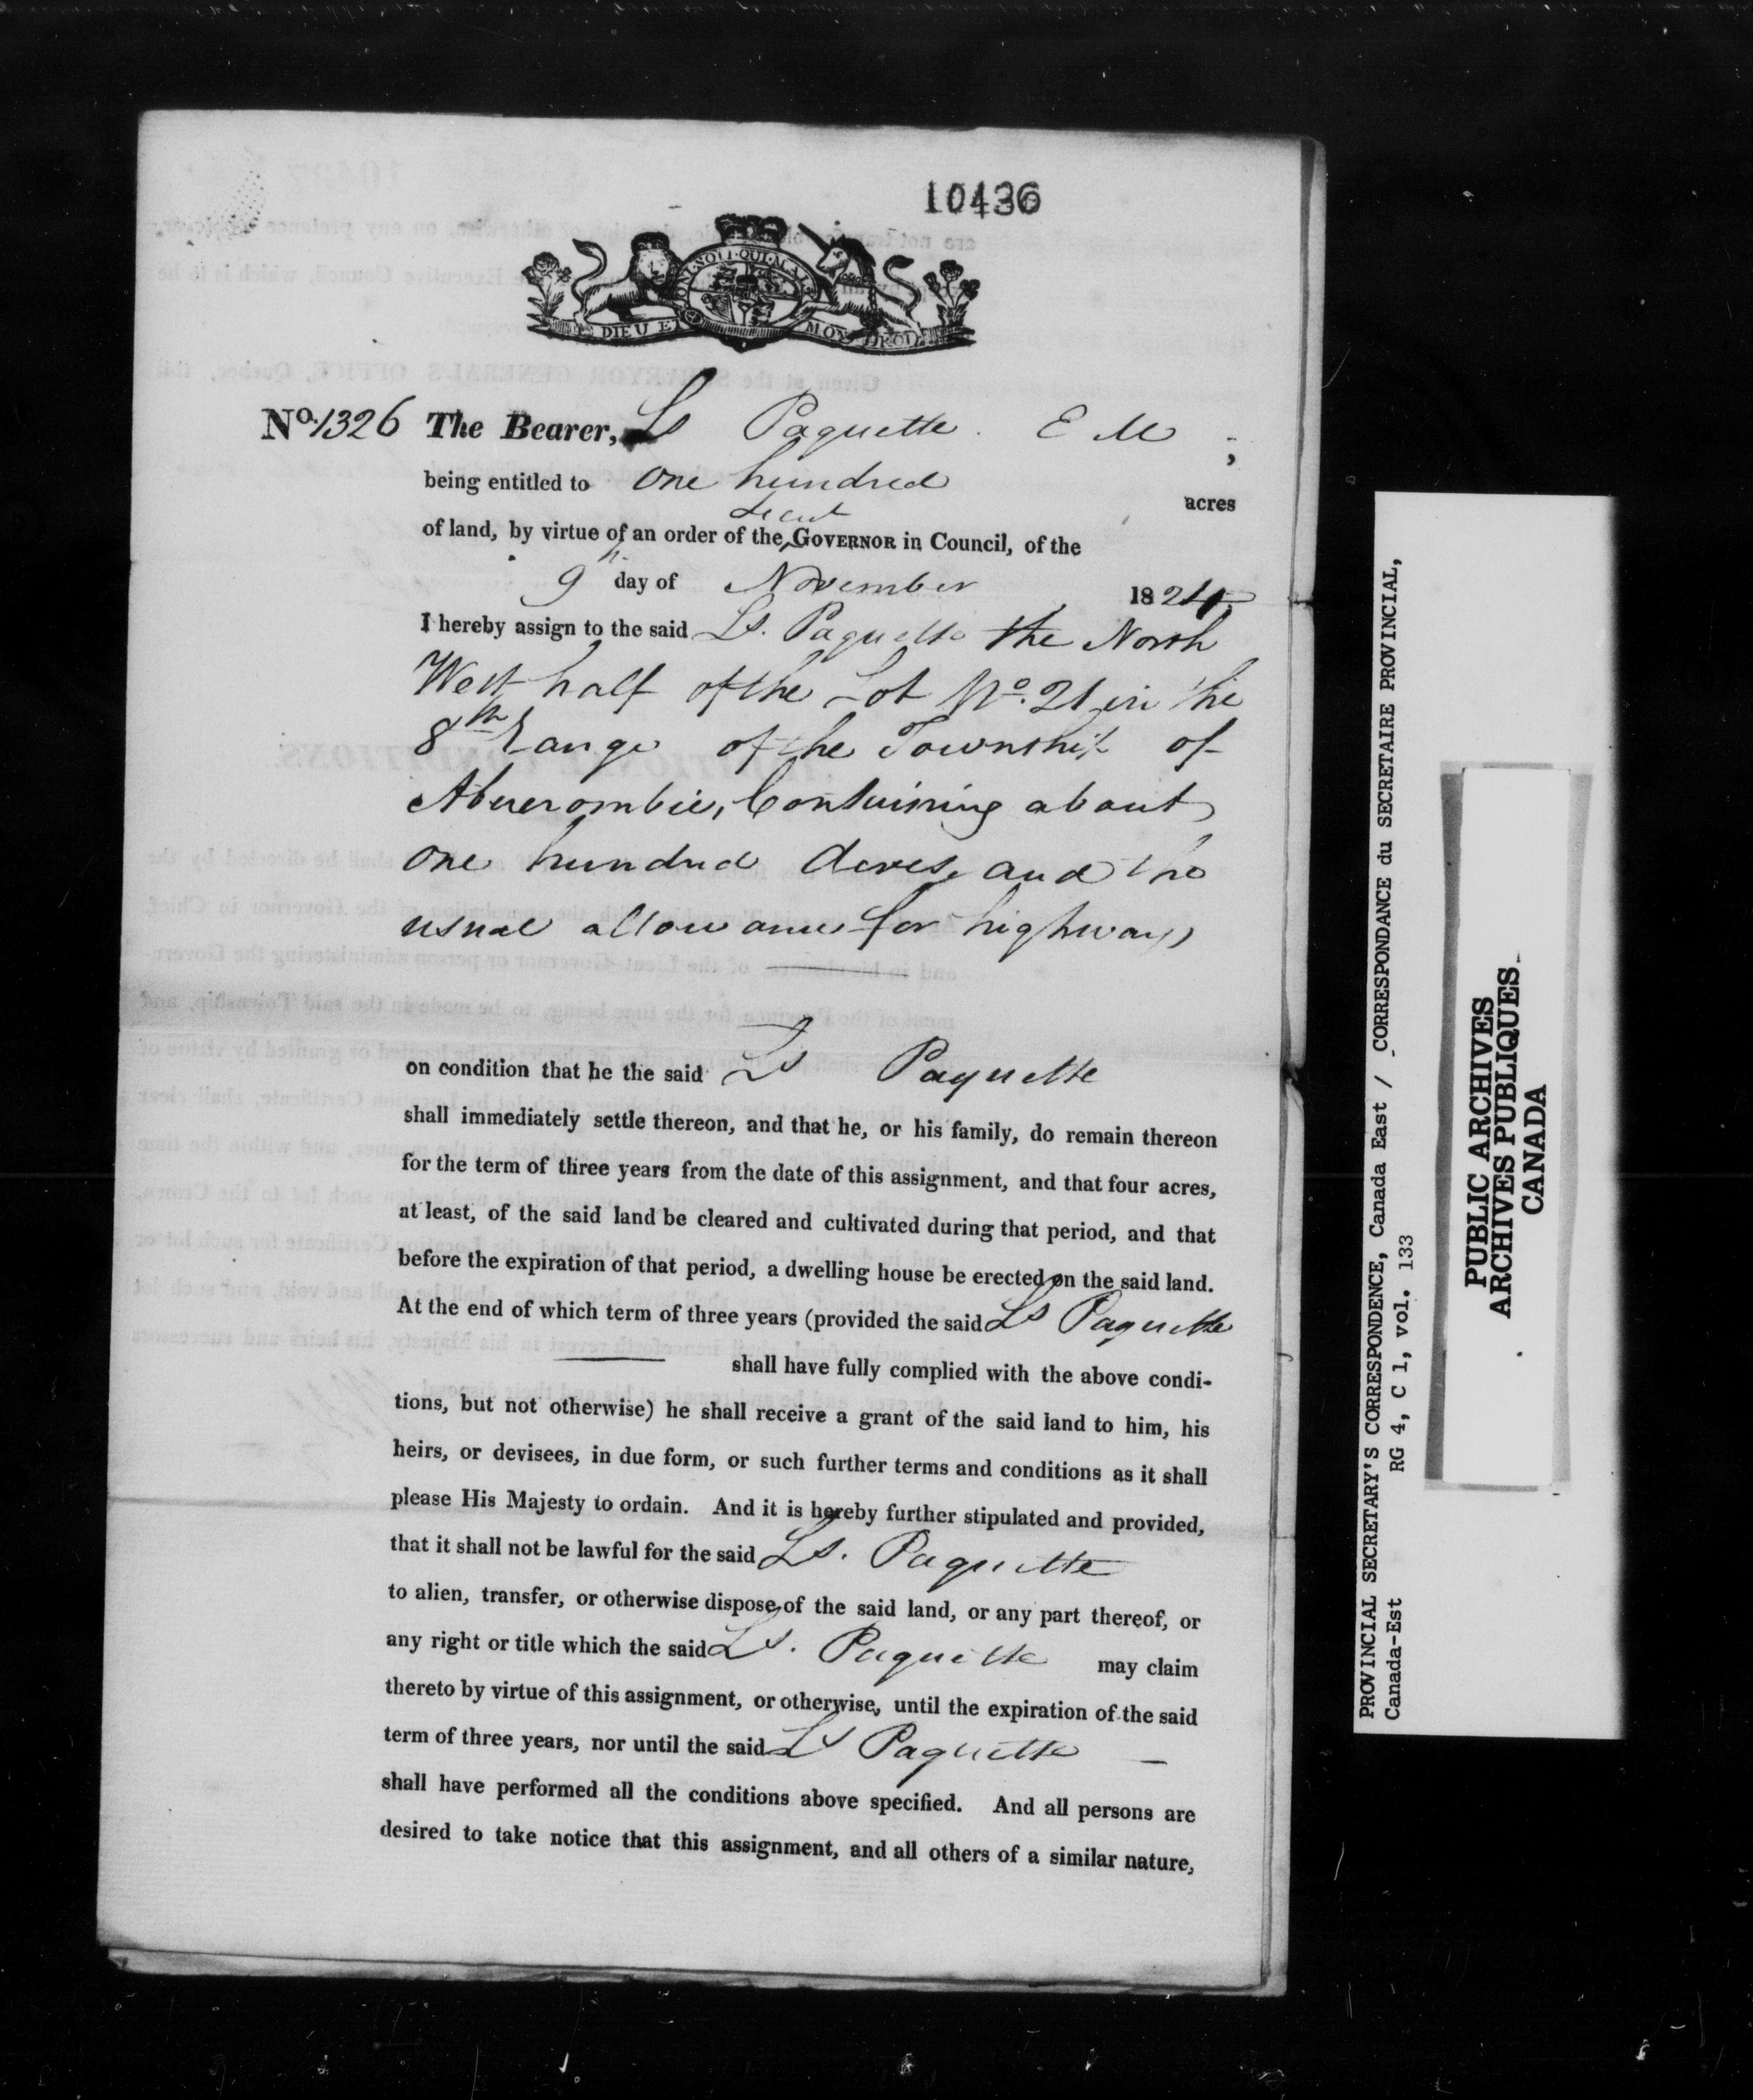 10436
HONI·SOIT·QUI·MAL
DIEU ET MON DROIT
No. 1326 The Bearer, Ls Paquette. E M ;
being entitled to One hundred acres
Lieut
of land, by virtue of an order of the, GOVERNOR in Council, of the
9th day of November 1824,
I hereby assign to the said Ls. Paquette the North
West half of the Lot No. 21 in the
8th Range of the Township of
Abercrombie, Containing about
one hundred Acres, and the
usual allowance for highways
on condition that he the said Ls Paquette
shall immediately settle thereon, and that he, or his family, do remain thereon
for the term of three years from the date of this assignment, and that four acres,
at least, of the said land be cleared and cultivated during that period, and that
before the expiration of that period, a dwelling house be erected on the said land.
At the end of which term of three years (provided the said Ls Paquette
shall have fully complied with the above condi-
tions, but not otherwise) he shall receive a grant of the said land to him, his
heirs, or devisees, in due form, or such further terms and conditions as it shall
please His Majesty to ordain. And it is hereby further stipulated and provided,
that it shall not be lawful for the said Ls. Paquette
to alien, transfer, or otherwise dispose of the said land, or any part thereof, or
any right or title which the said Ls. Paquette may claim
thereto by virtue of this assignment, or otherwise, until the expiration of the said
term of three years, nor until the said Ls Paquette
shall have performed all the conditions above specified. And all persons are
desired to take notice that this assignment, and all others of a similar nature,
PROVINCIAL SECRETARY'S CORRESPONDENCE, Canada East / CORRESPONDANCE du SECRETAIRE PROVINCIAL,
Canada-Est RG 4, C 1, vol. 133
PUBLIC ARCHIVES
ARCHIVES PUBLIQUES
CANADA